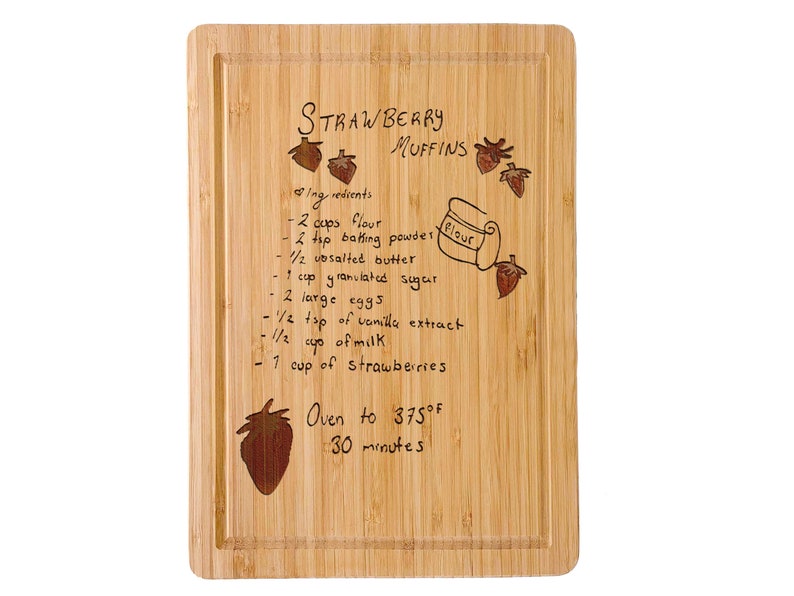 STRAWBERRY
MUFFINS
Ingredients
- 2 cups flour
- 2 tsp baking powder
- 1/2 unsalted butter
- 1 cup granulated sugar
- 2 large eggs
- 1/2 tsp of vanilla extract
- 1/2 cup of milk
- 1 cup of strawberries
flour
Oven to 375°F
30 minutes